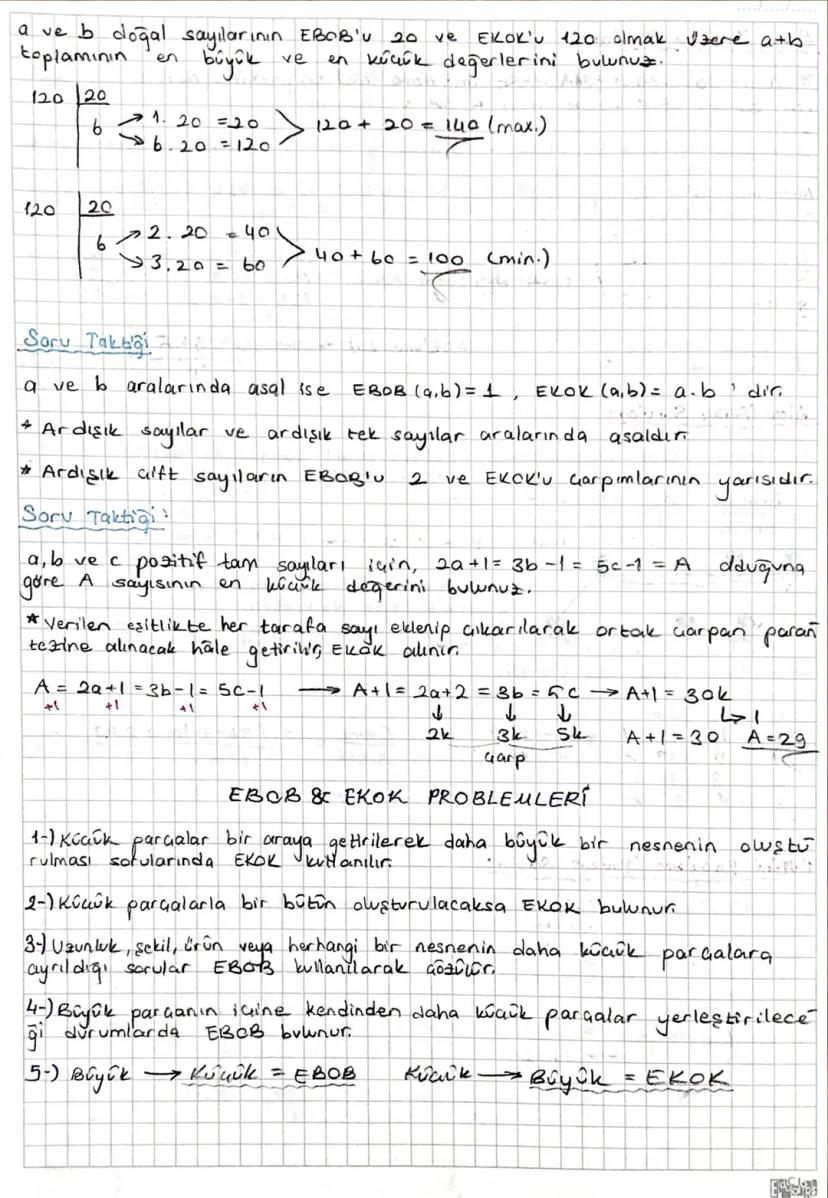 a ve b doğal sayılarının EBOB'u 20 ve EKOK'u 120 olmak üzere a+b
toplamının en büyük ve en küçük değerlerini bulunuz.
120 | 20
6 → 1. 20 = 20
→ 6. 20 = 120
120 + 20 = 140 (max.)
120 | 20
6 → 2. 20 = 40
→ 3. 20 = 60
40 + 60 = 100 (min.)
Soru Taktiği
a ve b aralarında asal ise EBOB (a,b) = 1 , EKOK (a,b) = a.b ' dir.
* Ardışık sayılar ve ardışık tek sayılar aralarında asaldır.
* Ardışık çift sayıların EBOB'u 2 ve EKOK'u çarpımlarının yarısıdır.
Soru Taktiği:
a, b ve c pozitif tam sayıları için, 2a+1 = 3b-1 = 5c-1 = A olduğuna
göre A sayısının en küçük değerini bulunuz.
* Verilen eşitlikte her tarafa sayı eklenip çıkarılarak ortak çarpan paran
tezine alınacak hâle getirilir, EKOK alınır.
A = 2a+1 = 3b-1 = 5c-1 → A+1 = 2a+2 = 3b = 5c → A+1 = 30k
+1 +1 +1 +1 ↓ ↓ ↓ ↳ 1
2k 3k 5k A+1 = 30 A = 29
çarp
EBOB & EKOK PROBLEMLERİ
1-) Küçük parçalar bir araya getirilerek daha büyük bir nesnenin oluştu
rulması sorularında EKOK kullanılır.
2-) Küçük parçalarla bir bütün oluşturulacaksa EKOK bulunur.
3-) Uzunluk, şekil, ürün veya herhangi bir nesnenin daha küçük parçalara
ayrıldığı sorular EBOB kullanılarak çözülür.
4-) Büyük parçanın içine kendinden daha küçük parçalar yerleştirilece
ği durumlarda EBOB bulunur.
5-) Büyük → Küçük = EBOB Küçük → Büyük = EKOK